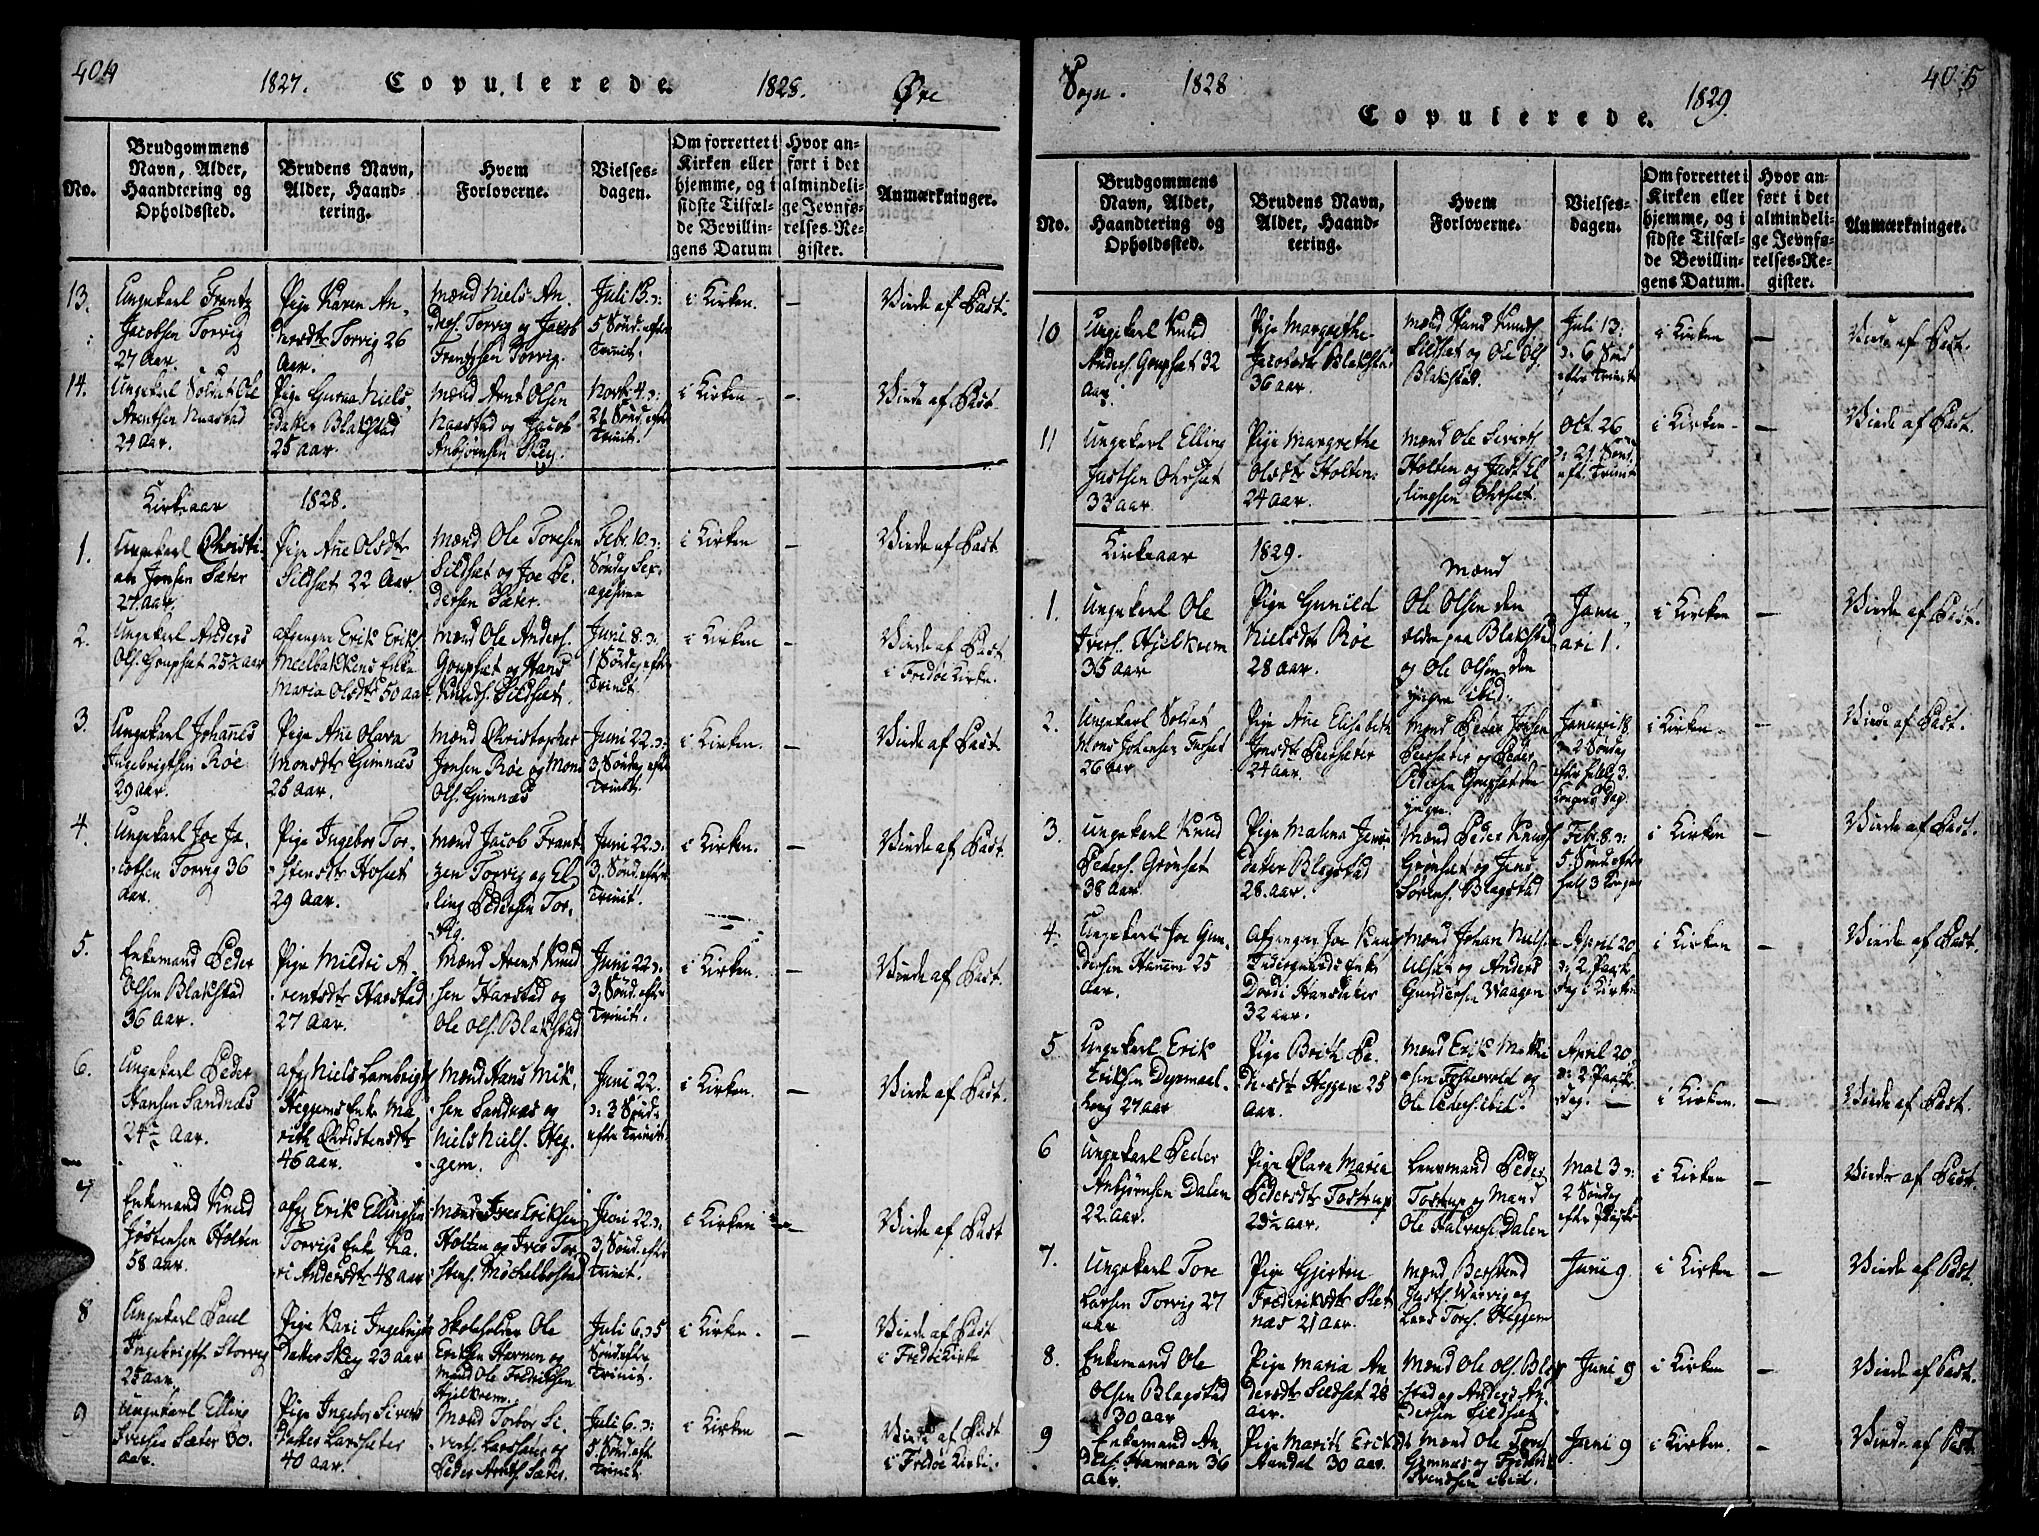 404
1827. Copulerede. 1828. Øre
No.
Brudgommens Navn, Alder, Haandtering og Opholdssted.
Brudens Navn, Alder, Haandtering.
Hvem Forloverne.
Vielsesdagen.
Om forrettet i Kirken eller hjemme, og i sidste Tilfælde Bevillingens Datum
Hvor anført i det almindelige Jevnførelses-Register.
Anmærkninger.
13.
Ungekarl Frantz
Jacobsen Torvig
27 Aar.
Pige Karen An-
dersdtr Torvig 26
Aar.
Mænd Niels An-
ders. Torvig og Jacob
Frantzsen Torvig.
Juli 15 ɔ:
5 Sønd. efter
Trinit.
i Kirken.
—
Viede af Past.
14.
Ungekarl Soldat Ole
Arentsen Naastad
24 Aar.
Pige Guraa Niels
datter Blakstad
25 aar.
Mænd Arnt Olsen
Naastad og Jacob
Anbjørnsen Skey.
Novbr 4 ɔ:
21 Sønd. efter
Trinit.
i Kirken
-
Viede af Past.
Kirkeaar 1828.
1.
Ungekarl Christi-
an Jonsen Sæter
27 Aar.
Pige Ane Olsdtr
Sildset 22 Aar.
Mænd Ole Toresen
Sildset og Joe Pe-
dersen Sæter.
Febr. 10 ɔ:
Søndag Sex-
agesima
i Kirken
—
Viede af Past
2.
Ungekarl Anders
Ols. Goupset 25½ aar
afgangne Erik Eriks.
Meelbakkens Enke
Maria Olsdtr 50 aar
Mænd Ole Anders.
Goupset og Hans
Knuds. Sildset.
Juni 8. ɔ:
1 Søndag efter
Trinit.
i Kirken
—
Viede af Past
i Fredøe Kirke.
3
Ungekarl Johanes
Ingebrigtsen Røe
29 aar.
Pige Ane Olava
Monsdtr Gimnæs
25 aar.
Mænd Christopher
Jonsen Røe og Mons
Ols. Gimnæs
Juni 22. ɔ:
3 Søndag efter
Trinit.
i Kirken.
—
Viede af Past
4
Ungekarl Joe Ja-
cobsen Torvig 36
aar.
Pige Ingebor Tor-
stensdtr Hoset
29 Aar.
Mænd Jacob Frant-
zen Torvig og El-
ling Pedersen Tor-
vig.
Juni 22. ɔ:
3 Sønd. efter
Trinit.
i Kirken.
—
Viede af Past.
5.
Enkemand Peder
Olsen Blakstad
36 aar.
Pige Mildri A-
rentsdtr Harstad
27 Aar.
Mænd Arent Knud
sen Harstad og
Ole Ols. Blakstad
Juni 22. ɔ:
3 Sønd. efter
Trinit.
i Kirken.
—
Viede af Past.
6.
Ungekarl Peder
Hansen Sandnæs
24½ Aar.
afg. Niels Lambrigts
Heggems Enke Ma-
rith Christensdtr
46 aar.
Mænd Hans Mik-
sen Sandnæs og
Niels Niels. Heg-
gem.
Juni 22.
ɔ: 3 Sønd.
efter Trinit.
i Kirken.
—
Viede af Past.
7
Enkemand Knud
Jøstensen Holten
58 aar.
afg. Erik Ellingsen
Torvigs Enke Ka-
ri Andersdtr 48 aar
Mænd Iver Eriksen
Holten og Iver Tor-
stens. Møchelbostad
Juni 22. ɔ:
3 Sønd. efter
Trinit.
i Kirken
—
Viede af Past
8
Ungekarl Paul
Ingebrigts. Storvig
25 aar.
Pige Kari Ingebrigts
datter Skey 23 aar
Skoleholder Ole
Eriksen Harnen og
Mand Ole Fredriksen
Hjelkrem.
Juli 6. ɔ: 5
Sønd. efter
Trinit.
i Kirken.
—
Viede af Past
i Fredøe Kirke
9
Ungekarl Elling
Iversen Sæter 30.
aar.
Pige Ingebor Siverts
datter Larssæter
40 aar.
Mænd Torbør Si-
verts. Larssæter og
Peder Arnts. Sæter.
Juli 6. ɔ:
5 Sønd. efter
Trinit.
i Kirken
—
Viede af Past
i Fredøe Kirke.
Sogn. 1828 Copulerede. 1829. 405
No.
Brudgommens Navn, Alder, Haandtering og Opholdssted.
Brudens Navn, Alder, Haandtering.
Hvem Forloverne.
Vielsesdagen.
Om forrettet i Kirken eller hjemme, og i sidste Tilfælde Bevillingens Datum.
Hvor anført i det almindelige Jevnførelses-Register.
Anmærkninger.
10
Ungekarl Knud
Anders. Goupset 32
aar.
Pige Margrethe
Jacobsdtr Blakstad
36 aar.
Mænd Hans Knuds.
Sildset og Ole Ols.
Blakstad.
Juli 13:
ɔ: 6 Sønd
efter Trinit
i Kirken
—
Viede af Past.
11
Ungekarl Elling
Justsen Ohrset
33 aar.
Pige Margrethe
Olsdtr Holten
24 aar.
Mænd Ole Siverts.
Holten og Just El-
lingsen Ohrset.
Oct. 26
ɔ: 21. Sønd.
eft. Trinit
i Kirken
—
Viede af Past.
Kirkeaar 1829.
1.
Ungekarl Ole
Ivers. Hjelkrem
35 aar
Pige Gunild
Nielsdtr Røe
28 aar.
Mænd
Ole Olsen den
ældre paa Blakstad
og Ole Olsen den
yngre ibid.
Janu-
ari 1.
i Kirken
—
Viede af Past.
2.
Ungekarl Soldat
Mons Johansen Fuset
26 aar
Pige Ane Elisabeth
Jonsdtr Peersæter
24 aar.
Mænd Peder Jossen
Peersæter og Peder
Petersen Goupset den
yngre.
Januari 18.
2 Søndag
efter hellig 3
Kongers Dag.
i Kirken
—
Viede af Past.
3.
Ungekarl Knud
Peders. Grønset
38 Aar.
Pige Malena Jens
datter Blagstad
28 aar.
Mænd Peder Knuds.
Grønset og Jens
Sørens. Blagstad
Febr. 8. ɔ:
5 Sønd. efter
hell. 3 Konger
i Kirken
—
Viede af Past.
4.
Ungekarl Joe Gun-
dersen Hanem 25
Aar.
afgangne Joe Knuds
Indergaards Enke
Dordi Hansdatter
32 aar.
Mænd Johan Niels.
Ulset og Anders
Gundersen Waagen
April 20
ɔ: 2. Paaske-
dag i Kirken
i Kirken
—
Viede af Past.
5
Ungekarl Erik
Eriksen Dyrmael-
houg 27 aar
Pige Brith Pe-
dersdtr Heggem 25
aar.
Mænd Erik
Fostervold og
Ole Peders. ibid.
April 20.
ɔ: 2 Paaske
dag.
i Kirken.
—
Viede af Past.
6
Ungekarl Peder
Anbjørnsen Dalen
22. aar.
Pige Clara Maria
Pedersdtr Tostrup
23½ aar.
Lensmand Peder
Tostrup og Mand
Ole Halvors. Dalen
Mai 3 ɔ:
2 Søndag
efter Paaske
i Kirken
—
Viede af Past.
7.
Ungekarl Tore
Larsen Torvig 27
aar
Pige Gjertru
Frederiksdtr Slet-
næs 21 aar.
Mænd Berstend
Justs. Warvig og
Lars Tores. Heggem
Juni 9.
i Kirken
—
Viede af Past.
8.
Enkemand Ole
Olsen Blagstad
30 aar
Pige Maria An-
dersdtr Sildset 28
aar.
Mænd Ole Ols. Blag-
stad og Anders An-
dersen Sildset
Juni 9
i Kirken
—
Viede af Past.
9
Enkemand An-
ders. Hamran 36
aar.
Pige Marith Eriksdt
Aandal 30 aar.
Mænd Ole Tores.
Gimnæs og Frederik
Svendsen ibid.
Juni 9
i Kirken.
—
Viede af Past.